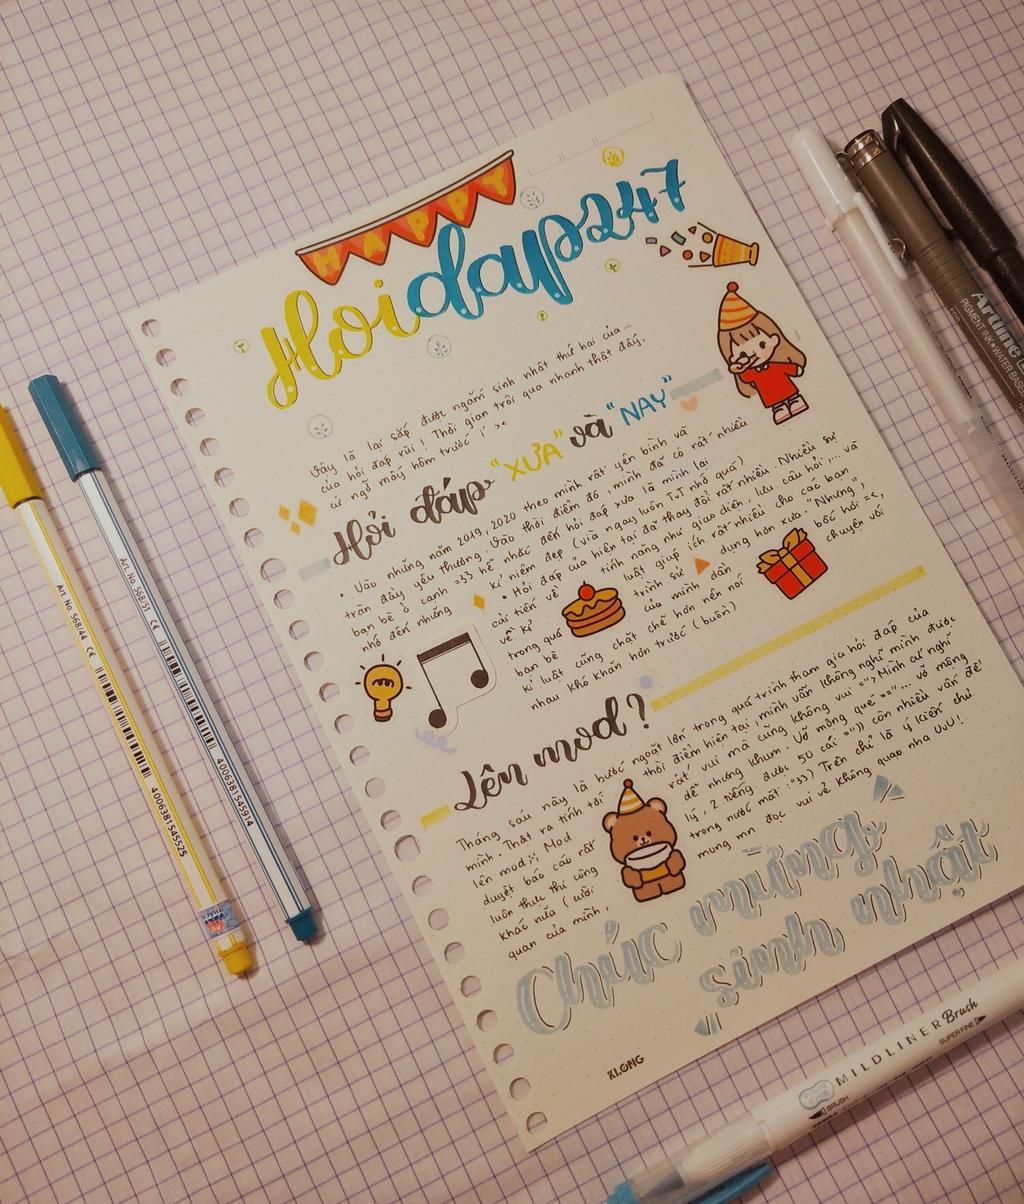 HAPPY
Hoidap247
Vậy là lại sắp được ngắm sinh nhật thứ hai của...
của hỏi đáp rùi! Thời gian trôi qua nhanh thật đấy,
cứ ngỡ mấy hôm trước
Hỏi đáp "XƯA" và "NAY"
• Vào những năm 2019, 2020 theo mình rất yên bình và
tràn đầy yêu thương. Vào thời điểm đó, mình đã có rất nhiều
bạn bè ở cạnh =33 hễ nhắc đến hỏi đáp xưa là mình lại
nhớ đến những kỉ niệm đẹp (vía ngay luôn T.T nhớ quá)
• Hỏi đáp của hiện tại đã thay đổi rất nhiều. Nhiều sự
cải tiến về tính năng như giao diện, lưu câu hỏi,... và
về kỉ luật giúp ích rất nhiều cho các bạn
trong quá trình sử dụng hơn xưa. "Nhưng",
bạn bè của mình dần bốc hơi =<,
kỉ luật cũng chặt chẽ hơn nên nói chuyện với
nhau khó khăn hơn trước (buồn)
Lên mod?
Tháng sau này là bước ngoặt lớn trong quá trình tham gia hỏi đáp của
mình. Thật ra tính tới thời điểm hiện tại, mình vẫn không nghĩ mình được
lên mod;; Mod rất vui mà cũng không vui =", Mình cứ nghĩ
duyệt báo cáo rất dễ nhưng khum. Vỡ mộng què =="... vỡ mộng
luôn thực thi công lý, 2 tiếng được 50 cái =")) còn nhiều vấn đề
khác nữa (cười trong nước mắt :"33) Trên chỉ là ý kiến chủ
quan của mình, mong mn đọc vui vẻ không quạo nha UuU!
Chúc mừng
sinh nhật
KLONG
Art. No. 568/44 CE
4006381545525
Art. No. 568/51 CE
4006381545914
Artline
PIGMENT INK • WATER BASE
MILDLINER Brush
BRUSH
SUPER FINE